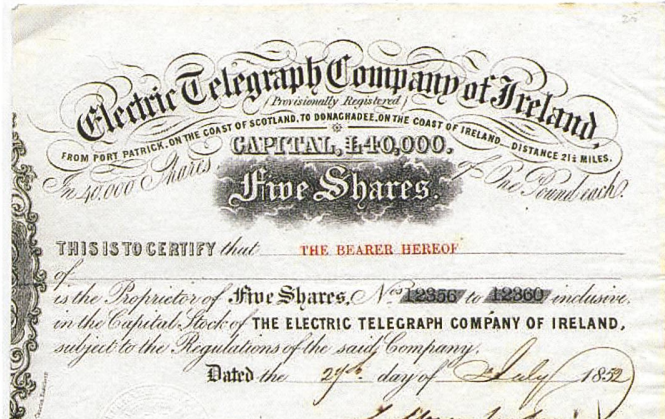 Electric Telegraph Company of Ireland,
(Provisionally Registered)
FROM PORT PATRICK, ON THE COAST OF SCOTLAND, TO DONAGHADEE, ON THE COAST OF IRELAND. DISTANCE 21½ MILES.
CAPITAL, £40,000.
In 40,000 Shares of One Pound each.
Five Shares.
THIS IS TO CERTIFY that THE BEARER HEREOF
of
is the Proprietor of Five Shares. Nos 12356 to 12360 inclusive.
in the Capital Stock of THE ELECTRIC TELEGRAPH COMPANY OF IRELAND,
subject to the Regulations of the said Company.
Dated the 29th day of July 1852